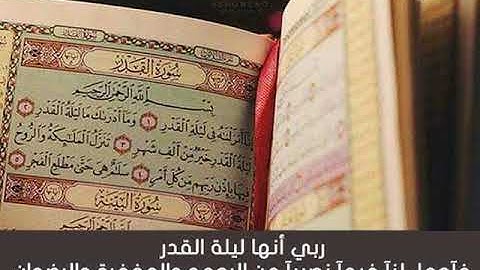 سُورَةُ الْقَدْرِ
بِسْمِ اللَّهِ الرَّحْمَٰنِ الرَّحِيمِ
إِنَّا أَنزَلْنَاهُ فِي لَيْلَةِ الْقَدْرِ ١ وَمَا أَدْرَاكَ مَا لَيْلَةُ الْقَدْرِ ٢
لَيْلَةُ الْقَدْرِ خَيْرٌ مِّنْ أَلْفِ شَهْرٍ ٣ تَنَزَّلُ الْمَلَائِكَةُ وَالرُّوحُ
فِيهَا بِإِذْنِ رَبِّهِم مِّن كُلِّ أَمْرٍ ٤ سَلَامٌ هِيَ حَتَّىٰ مَطْلَعِ الْفَجْرِ ٥
سُورَةُ الْبَيِّنَةِ
بِسْمِ اللَّهِ الرَّحْمَٰنِ الرَّحِيمِ
ربي أنها ليلة القدر
فآجعل لنآ فيهآ نصيبآ من الرحمه والمغفرة والرضوان